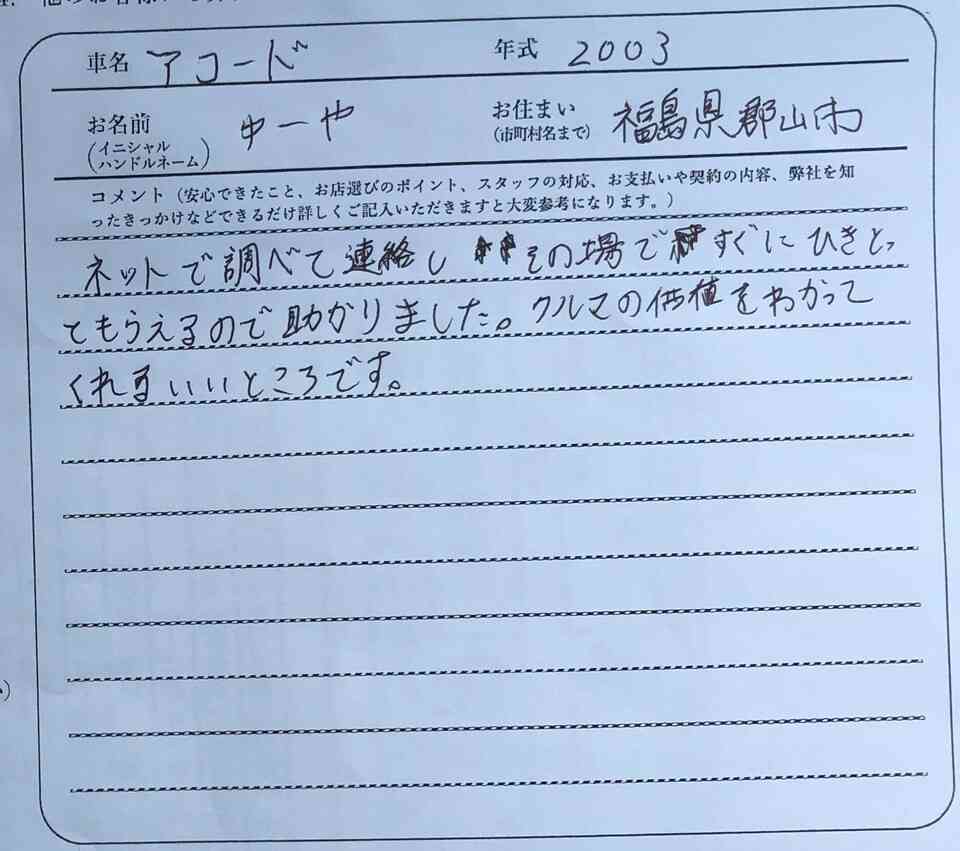 車名 アコード 年式 2003
お名前 ゆーや お住まい 福島県郡山市
(イニシャル (市町村名まで)
ハンドルネーム)
コメント（安心できたこと、お店選びのポイント、スタッフの対応、お支払いや契約の内容、弊社を知
ったきっかけなどできるだけ詳しくご記入いただきますと大変参考になります。）
ネットで調べて連絡し その場で すぐにひきとっ
てもらえるので助かりました。クルマの価値をわかって
くれるいいところです。